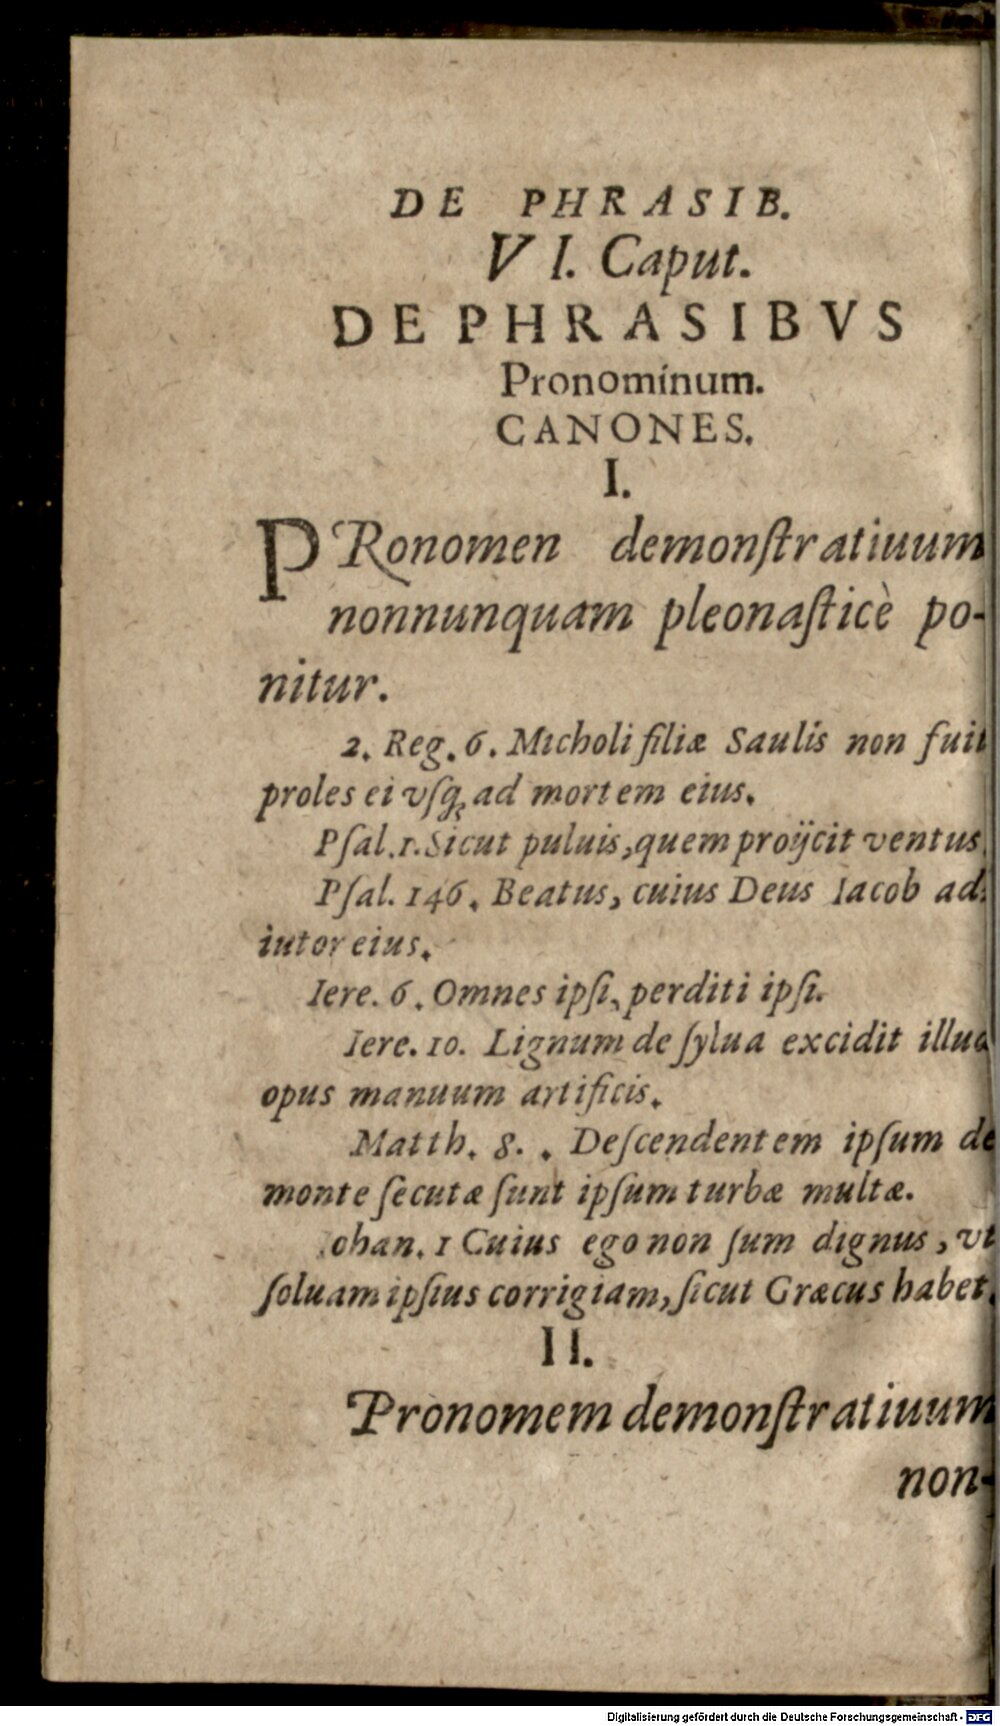 DE PHRASIB.
VI. Caput.
DE PHRASIBVS
Pronominum.
CANONES.
I.
PRonomen demonſtratiuum
nonnunquam pleonaſticè po-
nitur.
2. Reg. 6. Micholi filiæ Saulis non fuit
proles ei vſq; ad mortem eius.
Pſal. 1. Sicut puluis, quem proijcit ventus
Pſal. 146. Beatus, cuius Deus Iacob ad-
iutor eius.
Iere. 6. Omnes ipſi, perditi ipſi.
Iere. 10. Lignum de ſylua excidit illud
opus manuum artificis.
Matth. 8. . Deſcendentem ipſum de
monte ſecutæ ſunt ipſum turbæ multæ.
Iohan. 1 Cuius ego non ſum dignus, vt
ſoluam ipſius corrigiam, ſicut Græcus habet.
II.
Pronomem demonſtratiuum
non-
Digitalisierung gefördert durch die Deutsche Forschungsgemeinschaft - DFG